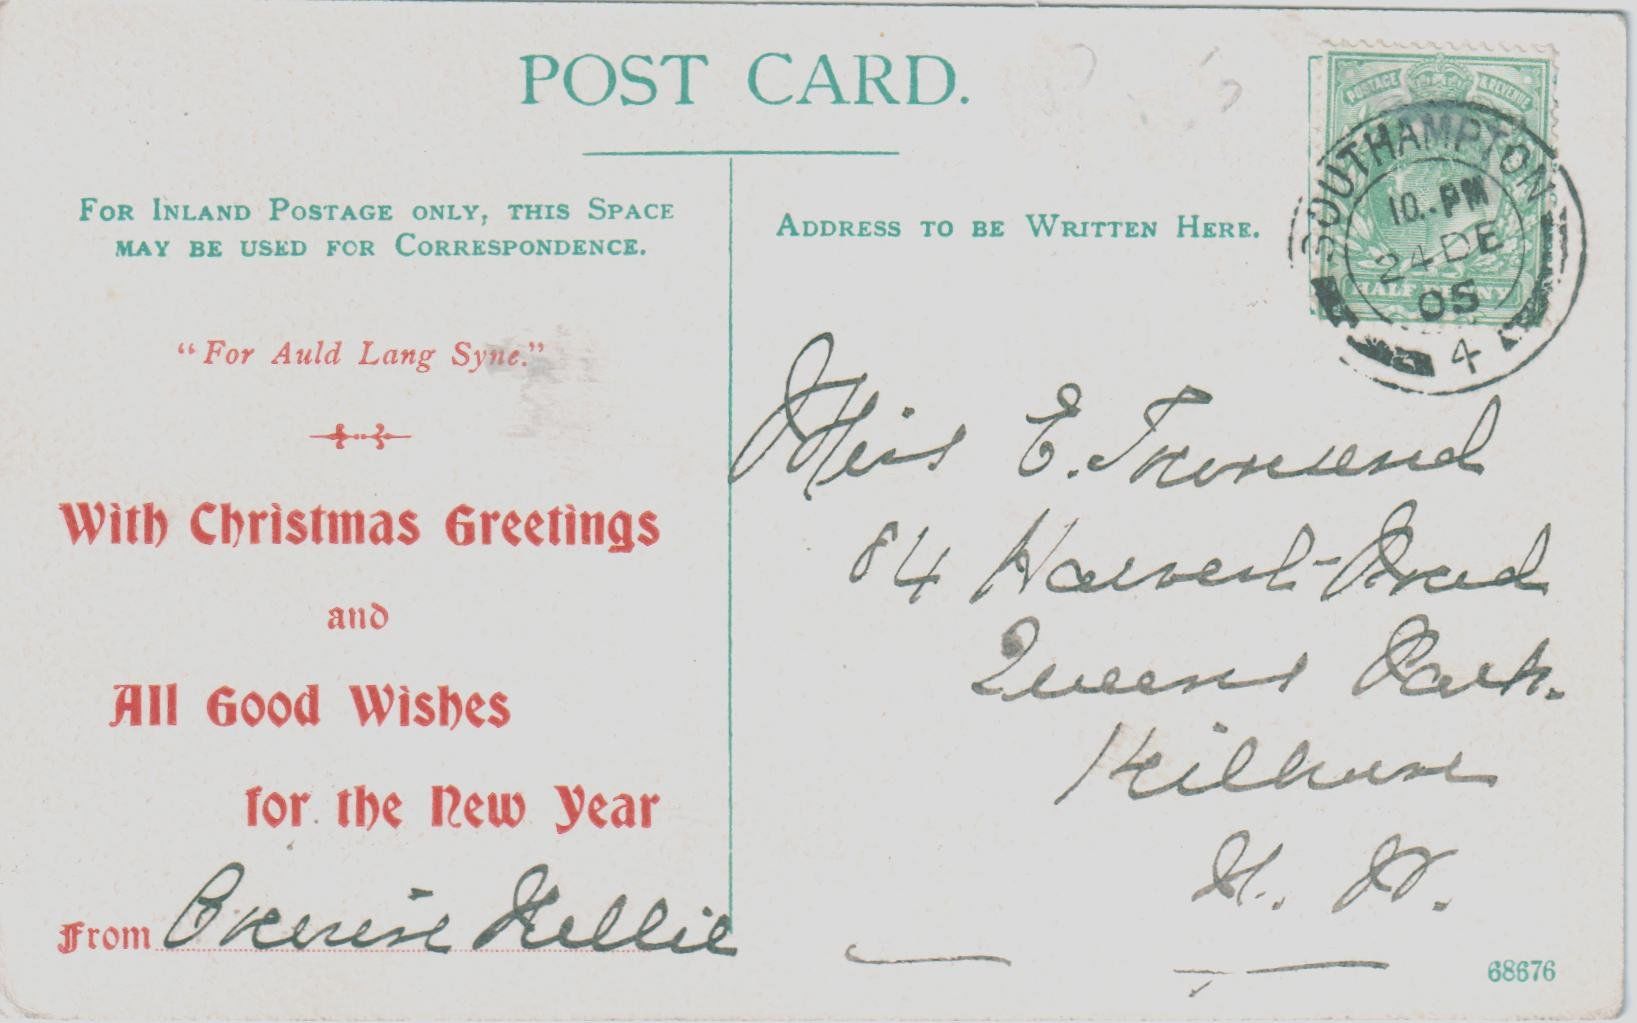 POST CARD.
FOR INLAND POSTAGE ONLY, THIS SPACE
MAY BE USED FOR CORRESPONDENCE.
"For Auld Lang Syne."
With Christmas Greetings
and
All Good Wishes
for the New Year
From Nellie
ADDRESS TO BE WRITTEN HERE.
POSTAGE & REVENUE
HALF PENNY
SOUTHAMPTON
10.-PM
24 DE
05
4
Miss E. Townsend
84 Harvest Road
Queens Park.
Kilburn
N. W.
68676